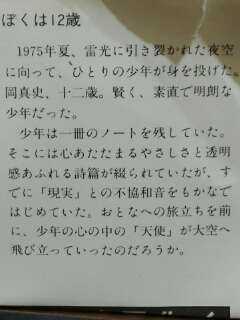 ぼくは12歳
1975年夏、雷光に引き裂かれた夜空
に向って、ひとりの少年が身を投げた。
岡真史、十二歳。賢く、素直で明朗な
少年だった。
少年は一冊のノートを残していた。
そこには心あたたまるやさしさと透明
感あふれる詩篇が綴られていたが、す
でに「現実」との不協和音をもかなで
はじめていた。おとなへの旅立ちを前
に、少年の心の中の「天使」が大空へ
飛び立っていったのだろうか。